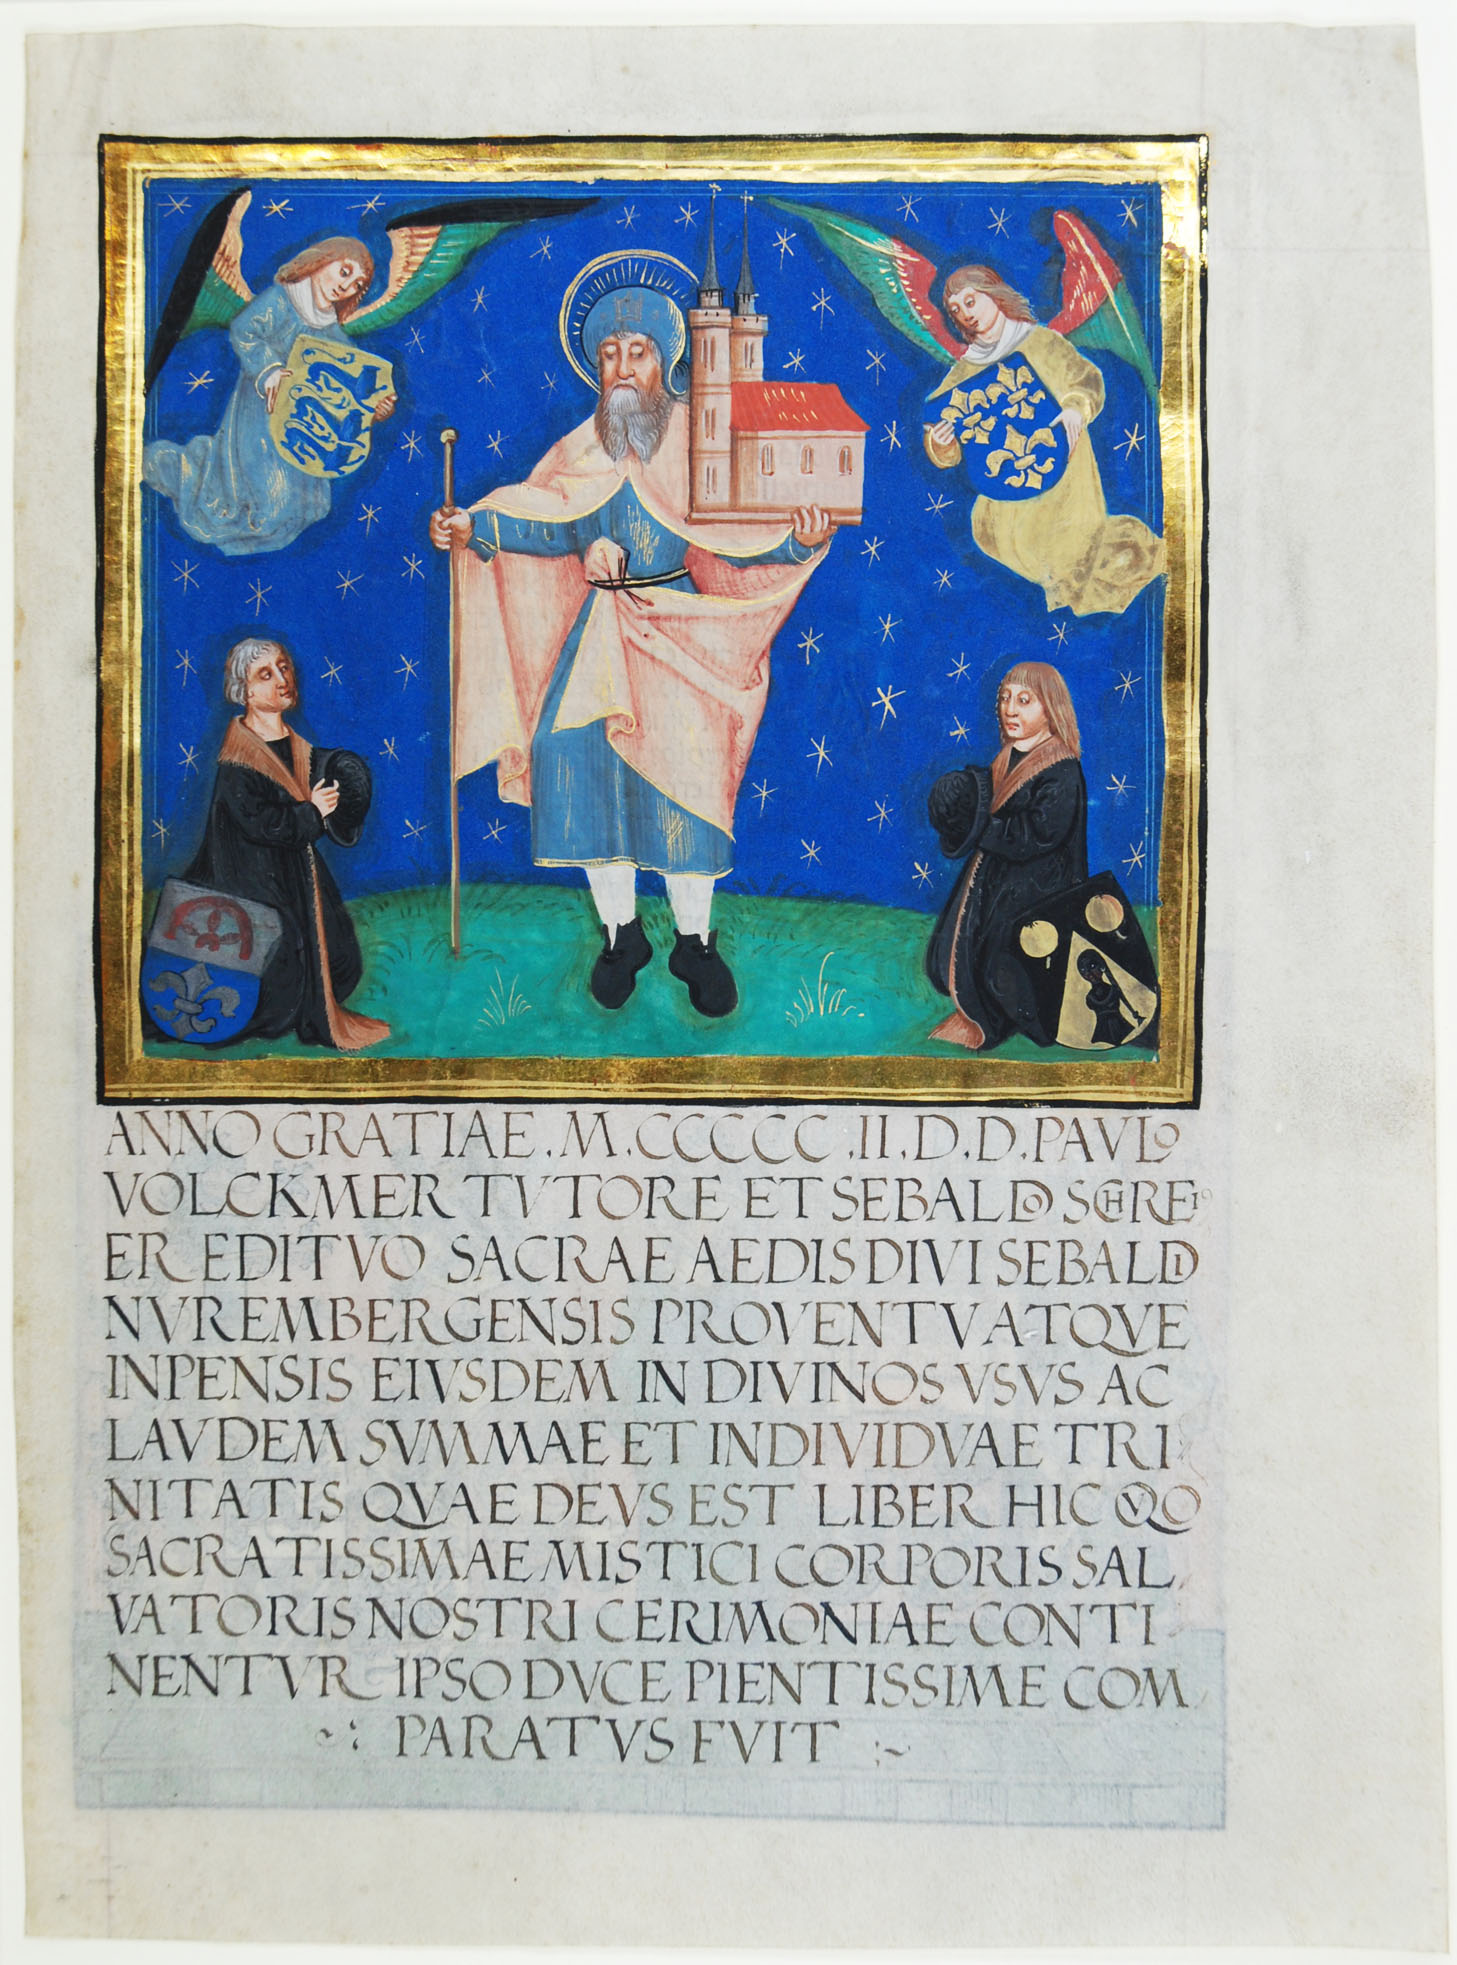 ANNO GRATIAE . M . CCCCC . II . D . D . PAVLO
VOLCKMER TVTORE ET SEBALDO SCHREI
ER EDITVO SACRAE AEDIS DIVI SEBALDI
NVREMBERGENSIS PROVENTV ATQVE
INPENSIS EIVSDEM IN DIVINOS VSVS AC
LAVDEM SVMMAE ET INDIVIDVAE TRI
NITATIS QVAE DEVS EST LIBER HIC QVO
SACRATISSIMAE MISTICI CORPORIS SAL
VATORIS NOSTRI CERIMONIAE CONTI
NENTVR IPSO DVCE PIENTISSIME COM
~ : PARATVS FVIT : ~